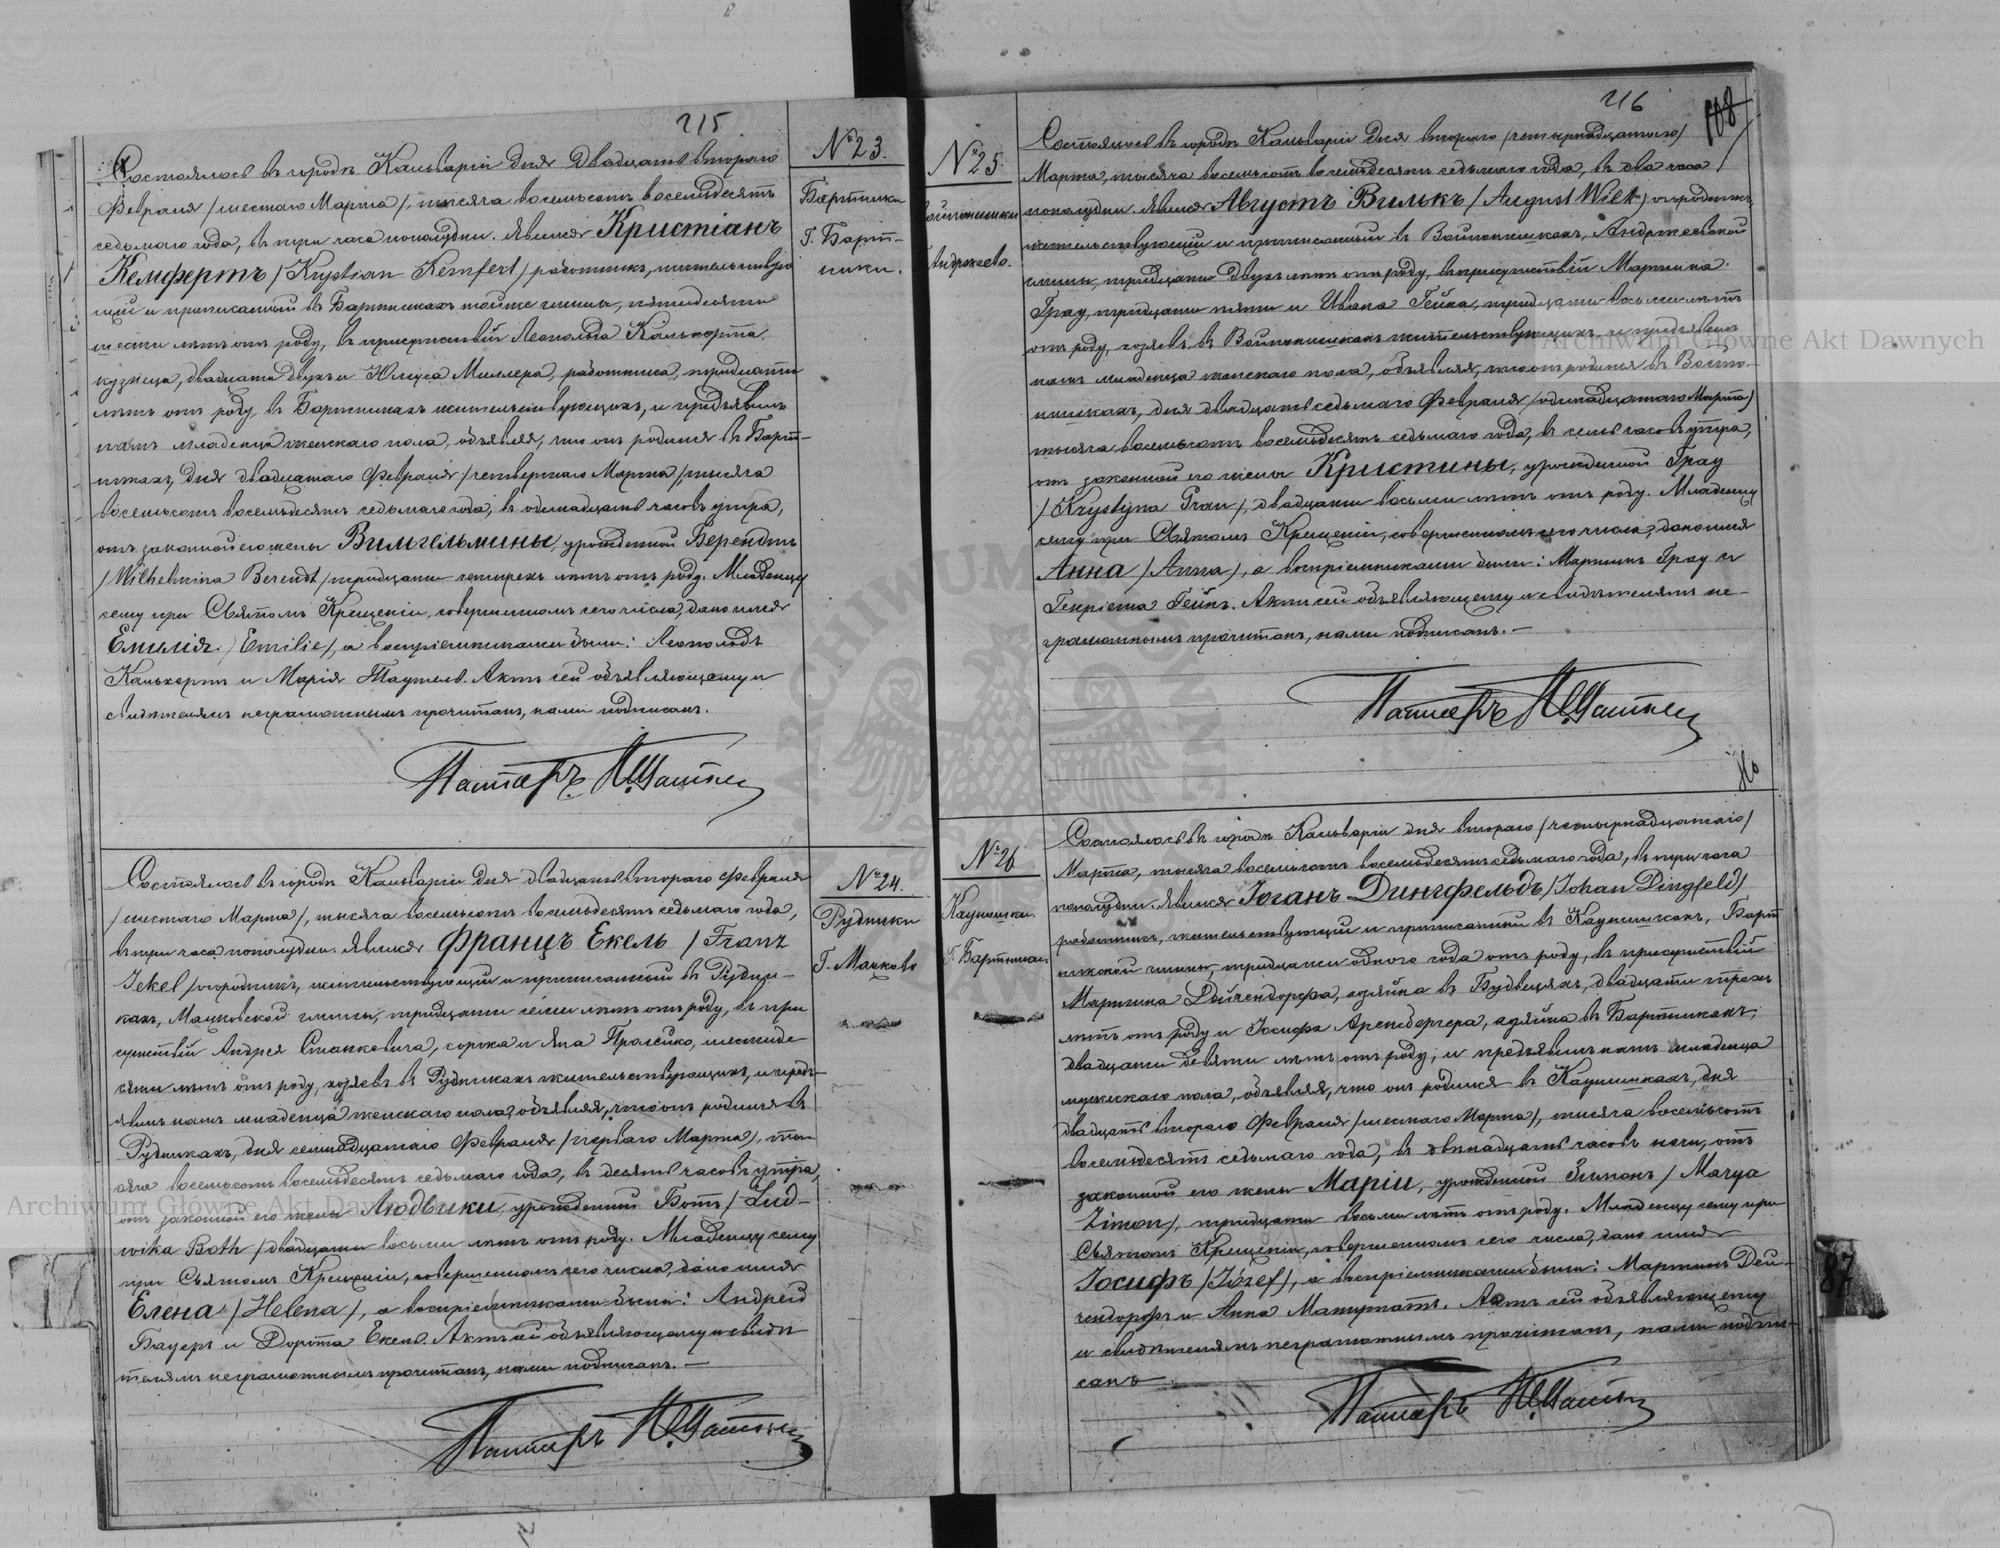 215
№ 23.
Бартники
Г. Барт-
ники.
Состоялось въ городѣ Кальваріи дня двадцать втораго
Февраля /шестаго Марта/, тысяча восемьсотъ восемьдесятъ
седьмаго года, въ три часа пополудни. Явился Кристіанъ
Кемфертъ /Krystian Kemfert/ работникъ, жительствую
щій и приписанный въ Бартникахъ тойже гмины, пятидесяти
шести лѣтъ отъ роду, въ присутствіи Леопольда Калькорта
кузнеца, двадцати двухъ и Юлиуса Миллера, работника, тридцати
лѣтъ отъ роду, въ Бартникахъ жительствующихъ, и предъявилъ
намъ младенца женскаго пола, объявляя, что онъ родился въ Барт-
никахъ, дня двадцатаго Февраля /четвертаго Марта/, тысяча
восемьсотъ восемьдесятъ седьмаго года, въ одинадцать часовъ утра,
отъ законной его жены Вильгельмины, урожденной Берендтъ
/Wilhelmina Berendt/ тридцати четырехъ лѣтъ отъ роду. Младенцу
сему при Святомъ Крещеніи, совершенномъ сего числа, дано имя
Емилія /Emilie/, а воспріемниками были: Леопольдъ
Калькортъ и Марія Таутель. Актъ сей объявляющему и
свидѣтелямъ неграмотнымъ прочитанъ, нами подписанъ.
Пасторъ
№ 24.
Рудники
Г. Мацково
Состоялось въ городѣ Кальваріи дня двадцать втораго Февраля
/шестаго Марта/, тысяча восемьсотъ восемьдесятъ седьмаго года,
въ три часа пополудни. Явился Францъ Екель /Franz
Jekel/ огородникъ, жительствующій и приписанный въ Рудни-
кахъ, Мацковской гмины, тридцати семи лѣтъ отъ роду, въ при
сутствіи Андрея Станкевича, сорока и Яна Прасцко, шестиде
сяти лѣтъ отъ роду, хозяевъ въ Рудникахъ жительствующихъ, и предъ-
явилъ намъ младенца женскаго пола, объявляя, что онъ родился въ
Рудникахъ, дня семнадцатаго Февраля /перваго Марта/, ты
сяча восемьсотъ восемьдесятъ седьмаго года, въ десять часовъ утра,
отъ законной его жены Людвики, урожденной Ботъ /Lud-
wika Both/ двадцати восьми лѣтъ отъ роду. Младенцу сему
при Святомъ Крещеніи, совершенномъ сего числа, дано имя
Елена /Helena/, а воспріемниками были: Андрей
Бауеръ и Дорота Екель. Актъ сей объявляющему и свидѣ
телямъ неграмотнымъ прочитанъ, нами подписанъ. —
Пасторъ
216
108
№ 25.
Войтонишки
Андржеево.
Состоялось въ городѣ Кальваріи дня втораго /четырнадцатаго/
Марта, тысяча восемьсотъ восемьдесятъ седьмаго года, въ два часа
пополудни. Явился Августъ Вилькъ /August Wilk/ огородникъ,
жительствующій и приписанный въ Войтонишкахъ, Андржеевской
гмины, тридцати двухъ лѣтъ отъ роду, въ присутствіи Мартина
Грау, тридцати пяти и Ивана Гейна, тридцати восьми лѣтъ
отъ роду, хозяевъ въ Войтонишкахъ жительствующихъ, и предъявилъ
намъ младенца женскаго пола, объявляя, что онъ родился въ Войто-
нишкахъ, дня двадцать седьмаго Февраля /одинадцатаго Марта/
тысяча восемьсотъ восемьдесятъ седьмаго года, въ семь часовъ утра,
отъ законной его жены Кристины, урожденной Грау
/Krystyna Grau/, двадцати восьми лѣтъ отъ роду. Младенцу
сему при Святомъ Крещеніи, совершенномъ сего числа, дано имя
Анна /Anna/, а воспріемниками были: Мартинъ Грау и
Генріета Гейнъ. Актъ сей объявляющему и свидѣтелямъ не-
грамотнымъ прочитанъ, нами подписанъ. —
Пасторъ
№ 26
Каунишки.
Г. Бартники.
Состоялось въ городѣ Кальваріи дня втораго /четырнадцатаго/
Марта, тысяча восемьсотъ восемьдесятъ седьмаго года, въ три часа
пополудни. Явился Іоганъ Дингфельдъ /Johan Dingfeld/
работникъ, жительствующій и приписанный въ Каунишкахъ, Барт
никской гмины, тридцати одного года отъ роду, въ присутствіи
Мартина Дейчендорфа, хозяина въ Будвецяхъ, двадцати трехъ
лѣтъ отъ роду и Іосифа Аренбергера, хозяина въ Бартникахъ,
двадцати девяти лѣтъ отъ роду; и предъявилъ намъ младенца
мужескаго пола, объявляя, что онъ родился въ Каунишкахъ, дня
двадцать втораго Февраля /шестаго Марта/, тысяча восемьсотъ
восемьдесятъ седьмаго года, въ двѣнадцать часовъ ночи, отъ
законной его жены Маріи, урожденной Зимонъ /Marya
Zimon/, тридцати восьми лѣтъ отъ роду. Младенцу сему при
Святомъ Крещеніи, совершенномъ сего числа, дано имя
Іосифъ /Józef/, а воспріемниками были: Мартинъ Дей-
чендорфъ и Анна Матутатъ. Актъ сей объявляющему
и свидѣтелямъ неграмотнымъ прочитанъ, нами подпи-
санъ
Пасторъ
87
Archiwum Główne Akt Dawnych
Archiwum Główne Akt Dawnych